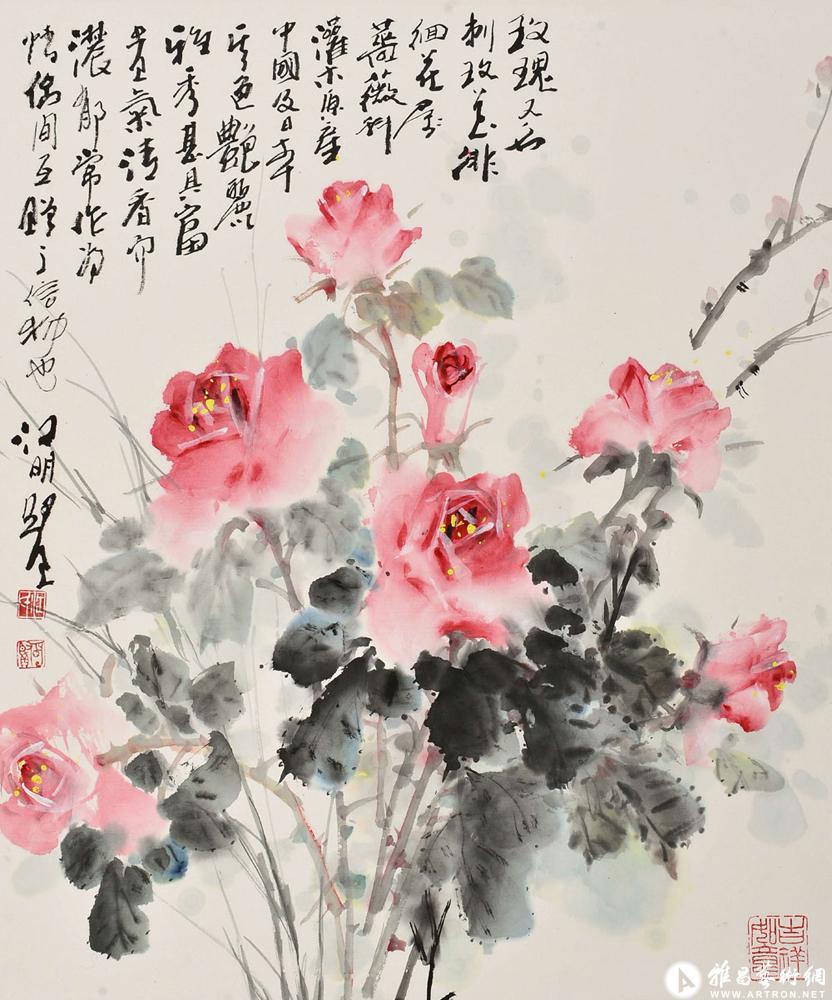 玫瑰又名
刺玫花徘
徊花属
薔薇科
灌木原產
中國及日本
其色艷麗
雅秀甚具富
貴氣清香而
濃郁常作為
情侶間互贈之信物也
江明賢
吉祥如意
雅昌藝術網
WWW.ARTRON.NET